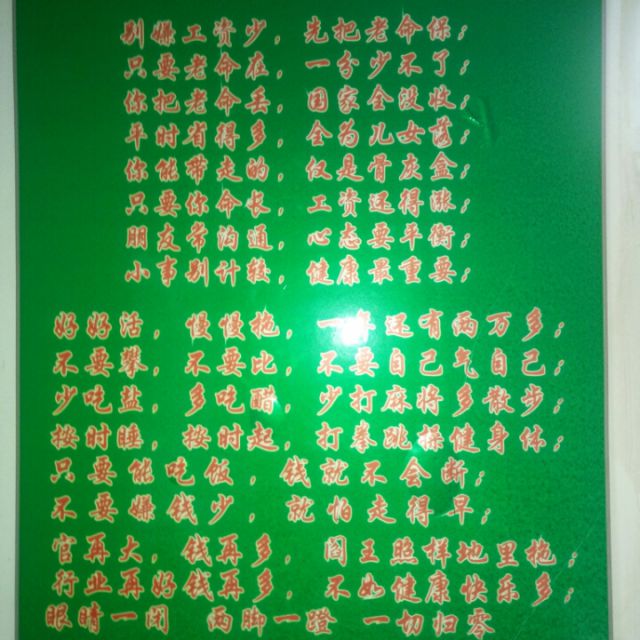 别嫌工资少，先把老命保；
只要老命在，一分少不了；
你把老命丢，国家全没收；
平时省得多，全为儿女落；
你能带走的，仅是骨灰盒；
只要你命长，工资还得涨；
朋友常沟通，心态要平衡；
小事别计较，健康最重要；
好好活，慢慢拖，一年还有两万多；
不要攀，不要比，不要自己气自己；
少吃盐，多吃醋，少打麻将多散步；
按时睡，按时起，打拳跳操健身体；
只要能吃饭，钱就不会断；
不要嫌钱少，就怕走得早；
官再大，钱再多，阎王照样地里拖；
行业再好钱再多，不如健康快乐多；
眼睛一闭 两脚一蹬 一切归零